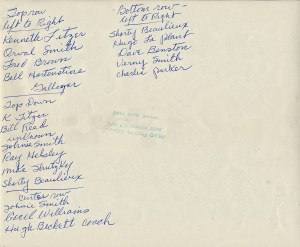 Top row
left to Right
Kenneth Fitzer
Orval Smith
Fred Brown
Bill Hortenstine
Gallegar
Tops Down
K Fitzer
Bill Reed
unknown
Johnie Smith
Ray Helsley
Mike Shutzky
Shorty Beaulieux
Center row
Johnie Smith
Cecil Williams
Hugh Beckett Coach
Bottom row
left to Right
Shorty Beaulieux
Hugo La Plant
Dave Benston
Verny Smith
Charlie Parker